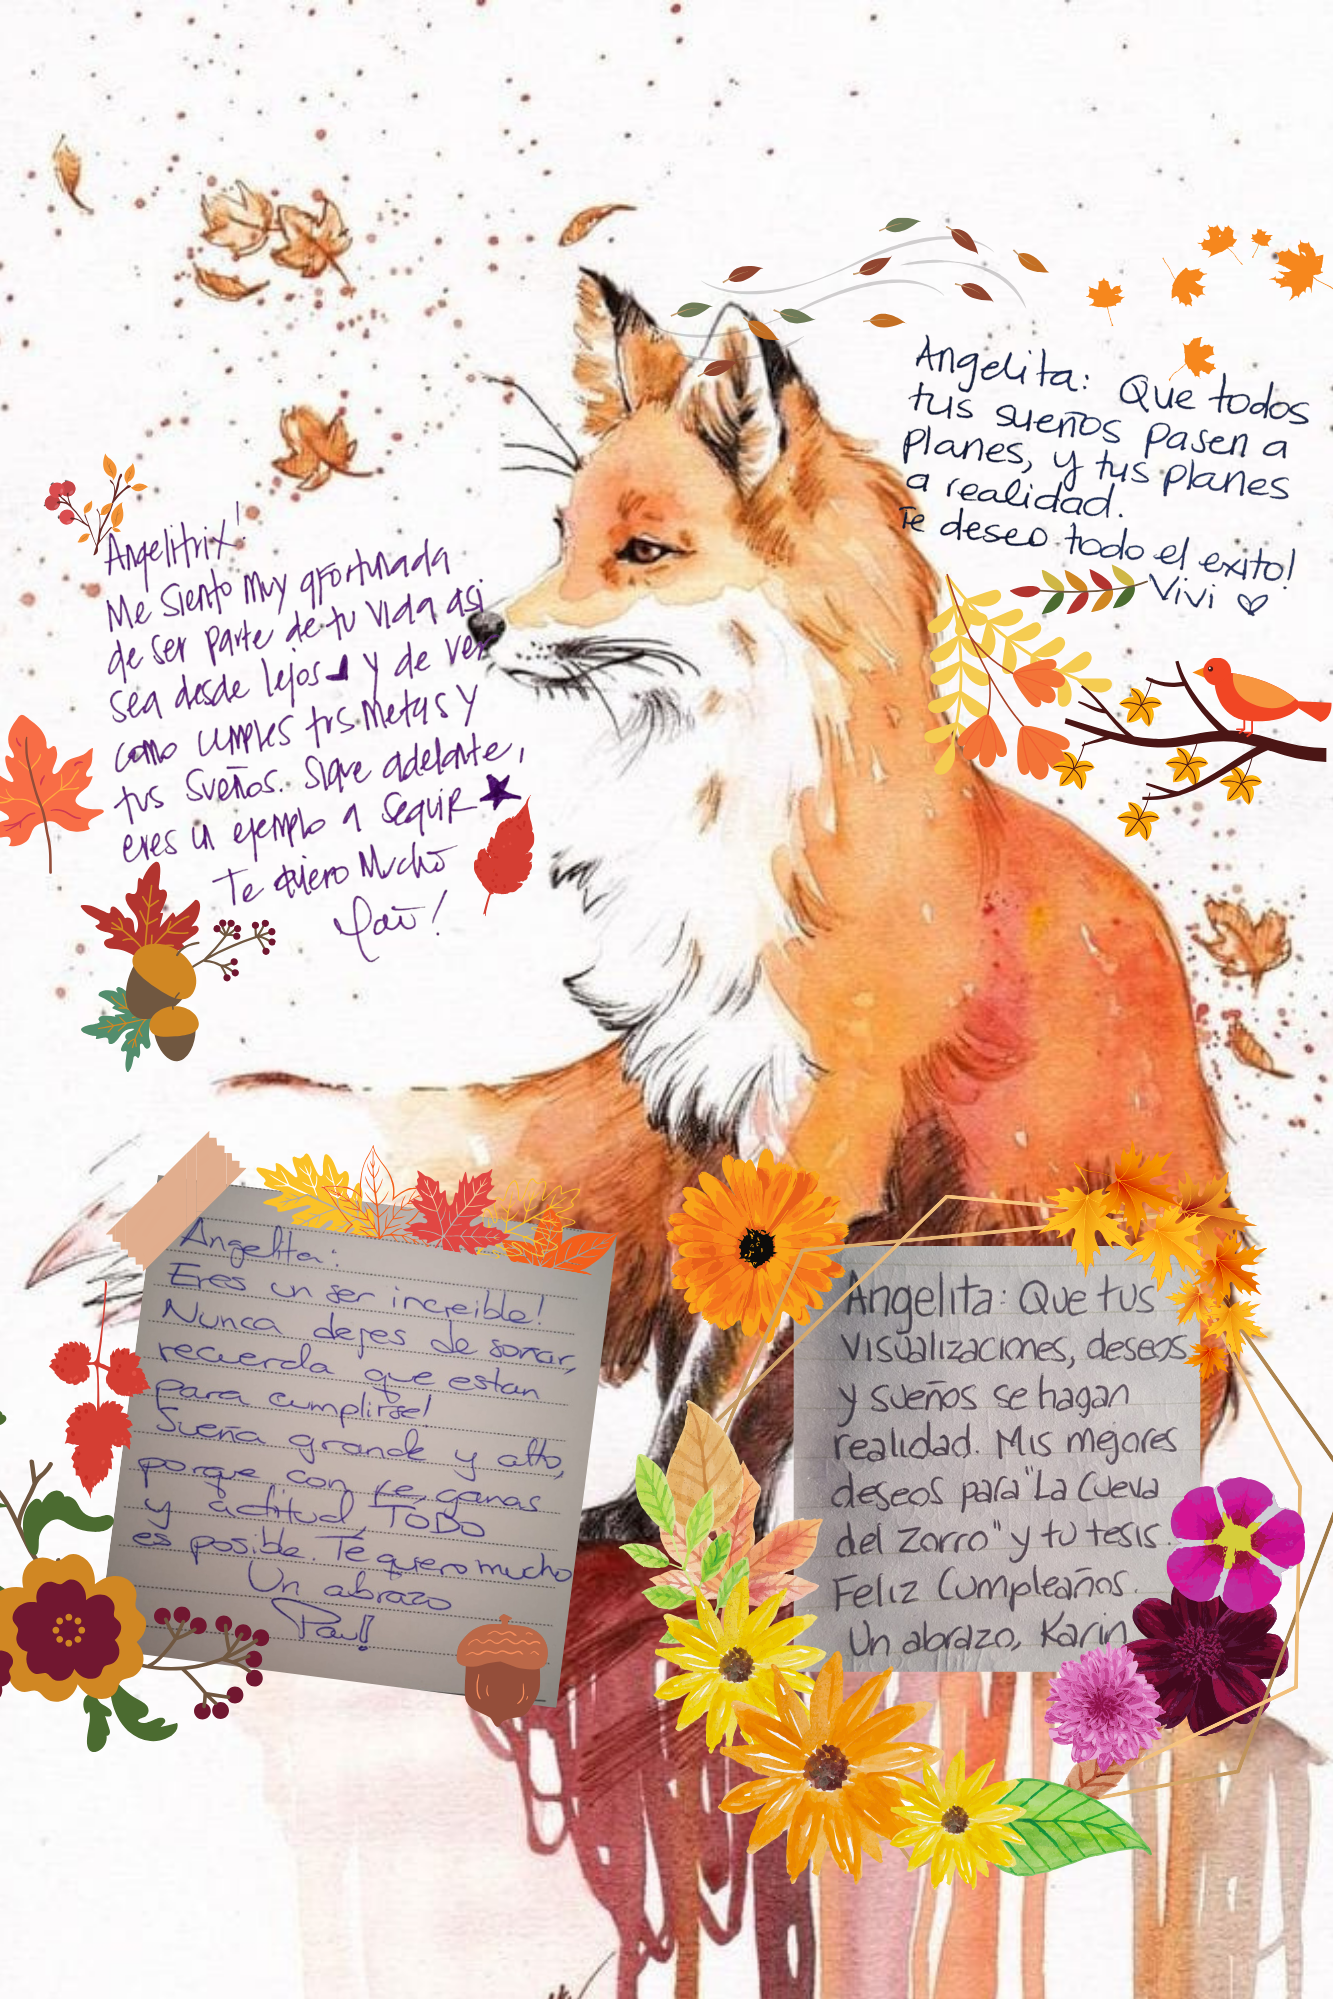 Angelita: Que todos
tus sueños pasen a
planes, y tus planes
a realidad.
Te deseo todo el exito!
Vivi
Angelitrix!
Me siento muy afortunada
de ser parte de tu vida asi
sea desde lejos y de ver
como cumples tus metas y
tus sueños. Sigue adelante,
eres un ejemplo a seguir
Te Quiero Mucho
Angelita:
Eres un ser increible!
Nunca dejes de soñar,
recuerda que estan
para cumplirse!
Sueña grande y alto,
porque con fe, ganas
y actitud TODO
es posible. Te quiero mucho
Un abrazo
Pau!
Angelita: Que tus
visualizaciones, deseos
y sueños se hagan
realidad. Mis mejores
deseos para "La Cueva
del Zorro" y tu tesis.
Feliz Cumpleaños.
Un abrazo, Karin